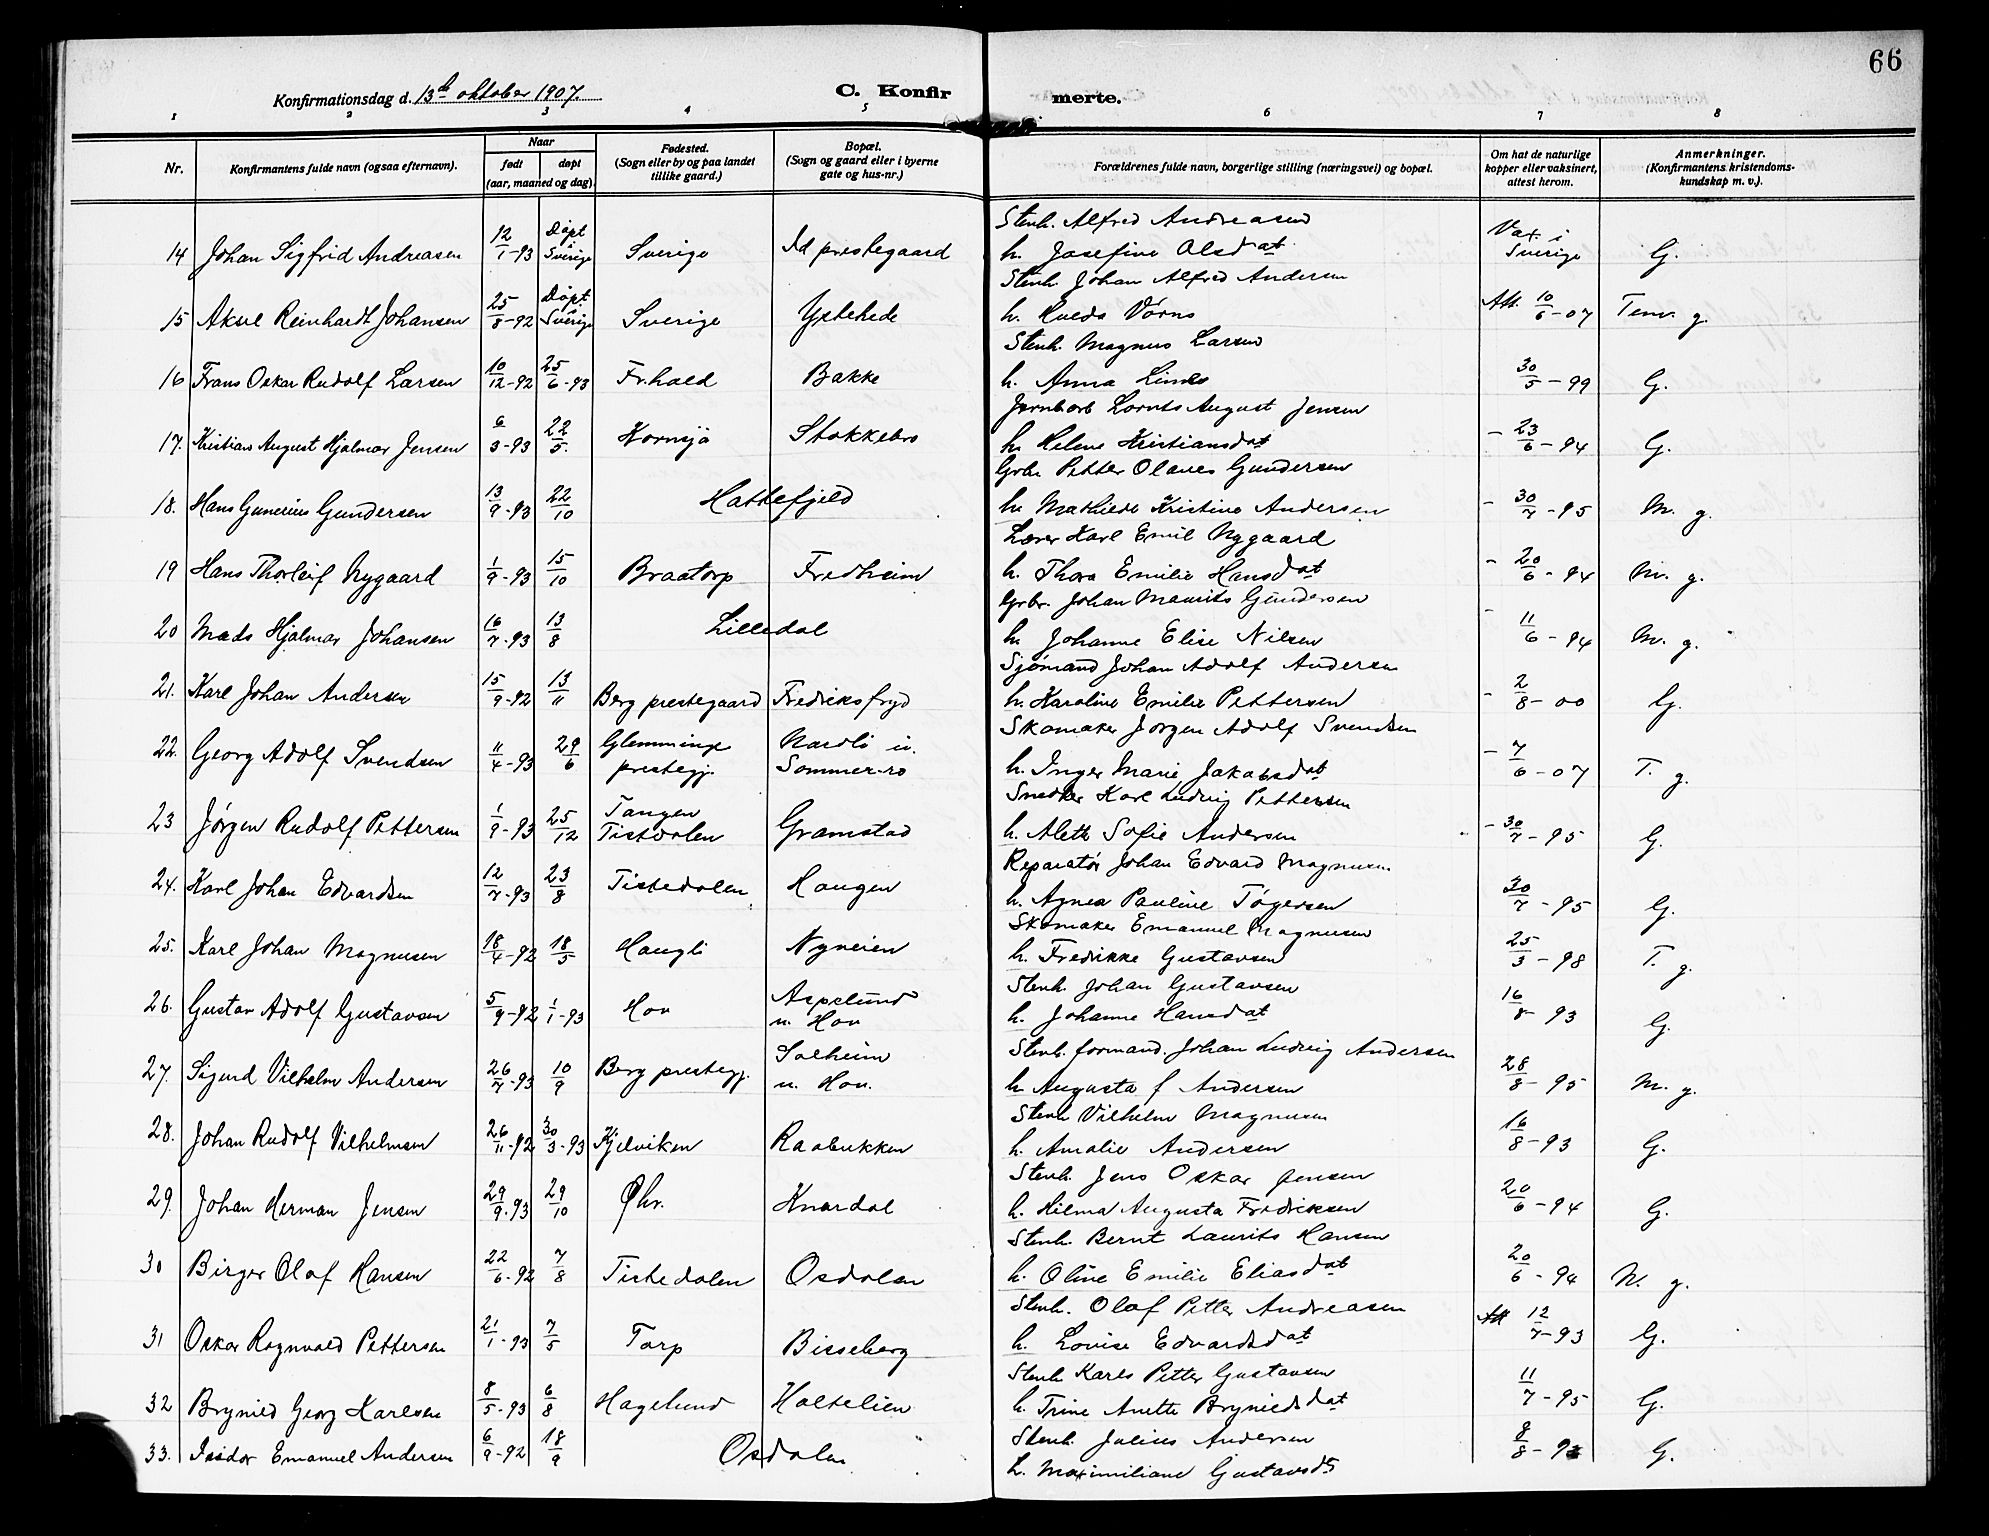 66
Konfirmationsdag d. 13de oktober 1907.
C. Konfirmerte.
1 2 3 4 5 6 7 8
Nr.
Konfirmantens fulde navn (ogsaa efternavn).
Naar
født
døpt
(aar, maaned og dag).
Fødested.
(Sogn eller by og paa landet
tillike gaard.)
Bopæl.
(Sogn og gaard eller i byerne
gate og hus-nr.)
Forældrenes fulde navn, borgerlige stilling (næringsvei) og bopæl.
Om hat de naturlige
kopper eller vaksinert,
attest herom.
Anmerkninger.
(Konfirmantens kristendoms-
kundskap m. v.).
Stenh. Alfred Andreasen
14 Johan Sigfrid Andreasen 12/1-93 Døpt i Sverige Sverige Id prestegaard h. Josefine Olsdat Vax. i Sverige G.
Stenh. Johan Alfred Andersen
15 Aksel Reinhardt Johansen 25/8-92 Døpt i Sverige Sverige Ystehede h. Hulda Vørns Att. 10/6-07 Temm. g.
Stenh. Magnus Larsen
16 Frans Oskar Rudolf Larsen 10/12-92 25/6-93 Fr.hald Bakke h. Anna Linds 30/5-99 G.
Jernbarb Lornts August Jensen
17. Kristian August Hjalmar Jensen 6/3-93 22/5. Kornsjø Stokkebro h. Helene Kristiansdat - 23/6-94 G.
Grbr. Petter Olaves Gundersen
18. Hans Gunerius Gundersen 13/9-93 22/10 Hattefjeld h. Mathilde Kristine Andersen - 30/7-95 M. g.
Lærer Karl Emil Nygaard
19 Hans Thorleif Nygaard 1/9-93 15/10 Braatorp Fredheim h. Thora Emilie Hansdat - 20/6-94 M. g.
Grbr. Johan Maurits Gundersen
20 Mads Hjalmar Johansen 16/7-93 13/8 Lilledal h. Johanne Elise Nilsen - 11/6-94 M. g.
Sjømand Johan Adolf Andersen
21. Karl Johan Andersen 15/9-92 13/11 Berg prestegaard Fredriksfryd h. Karoline Emilie Pettersen - 2/8-00 G.
Skomaker Jørgen Adolf Svendsen
22. Georg Adolf Svendsen 11/4-93 29/6 Glemminge prestegj. Nordli u. Sommer-ro h. Inger Marie Jakobsdat - 7/6-07 T. g.
Snedker Karl Ludvig Pettersen
23 Jørgen Rudolf Pettersen 1/9-93 25/12 Tangen Tistedalen Gramstad h. Aleth Sofie Andersen - 30/7-95 G.
Reparatør Johan Edvard Magnusen
24. Karl Johan Edvardsen 12/7-93 23/8 Tistedalen Haugen h. Agnes Pauline Tøgersen 30/7-95 G.
Skomaker Emanuel Magnusen
25. Karl Johan Magnusen 18/4-92 18/5 Haugli Nyveien h. Fredrikke Gustavsen 25/3-98 T. g.
Stenh. Johan Gustavsen
26. Gustav Adolf Gustavsen 5/9-92 1/1-93 Hov Aspelund u. Hov h. Johanne Hansdat 16/8-93 G.
Stenh. formand. Johan Ludvig Andersen
27. Sigurd Vilhelm Andersen 26/7-93 10/9 Berg prestegj. Solheim u. Hov. h. Augusta f Andersen 28/8-95 M. g.
Stenh Vilhelm Magnusen
28. Johan Rudolf Vilhelmsen 26/11-92 30/3-93 Kjelviken Raabukken h. Amalie Andersen 16/8-93 G.
Stenh. Jens Oskar Jensen
29. Johan Herman Jensen 29/9-93 29/10 Knardal h. Hilma Augusta Fredriksen 20/6-94 G.
Stenh. Bernt Laurits Hansen
30 Birger Olaf Hansen 22/6-92 7/8 Tistedalen Osdalen h. Oline Emilie Eliasdat 20/6-94 M. g.
Stenh. Olaf Petter Andreasen
31 Oskar Ragnvald Pettersen 21/1-93 7/5 Torp Bisseberg h. Lovise Edvardsdat Att 12/7-93 G.
Stenh Karls Petter Gustavsen
32 Brynild Georg Karlsen 8/5-93 6/8 Hagelund Holtelien h. Trine Anette Brynildsdat 11/7-95 G.
Stenh. Julius Andersen
33. Isidor Emanuel Andersen 6/9-92 18/9 Osdalen h. Maximiliane Gustavsdt 8/8-93 G.